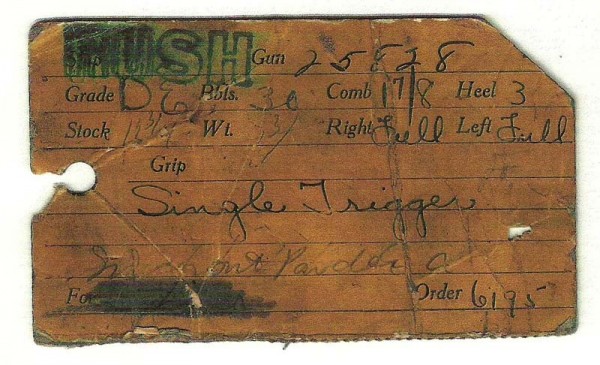 RUSH Gun 25828
Grade DE Bbls. 30 Comb 1 7/8 Heel 3
Stock Wt. Right Full Left Full
Grip
Single Trigger
For Order 6195